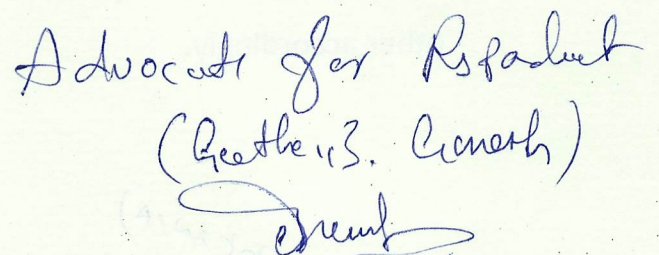 Advocate for Respondent
(Geetha B. Ganesh)